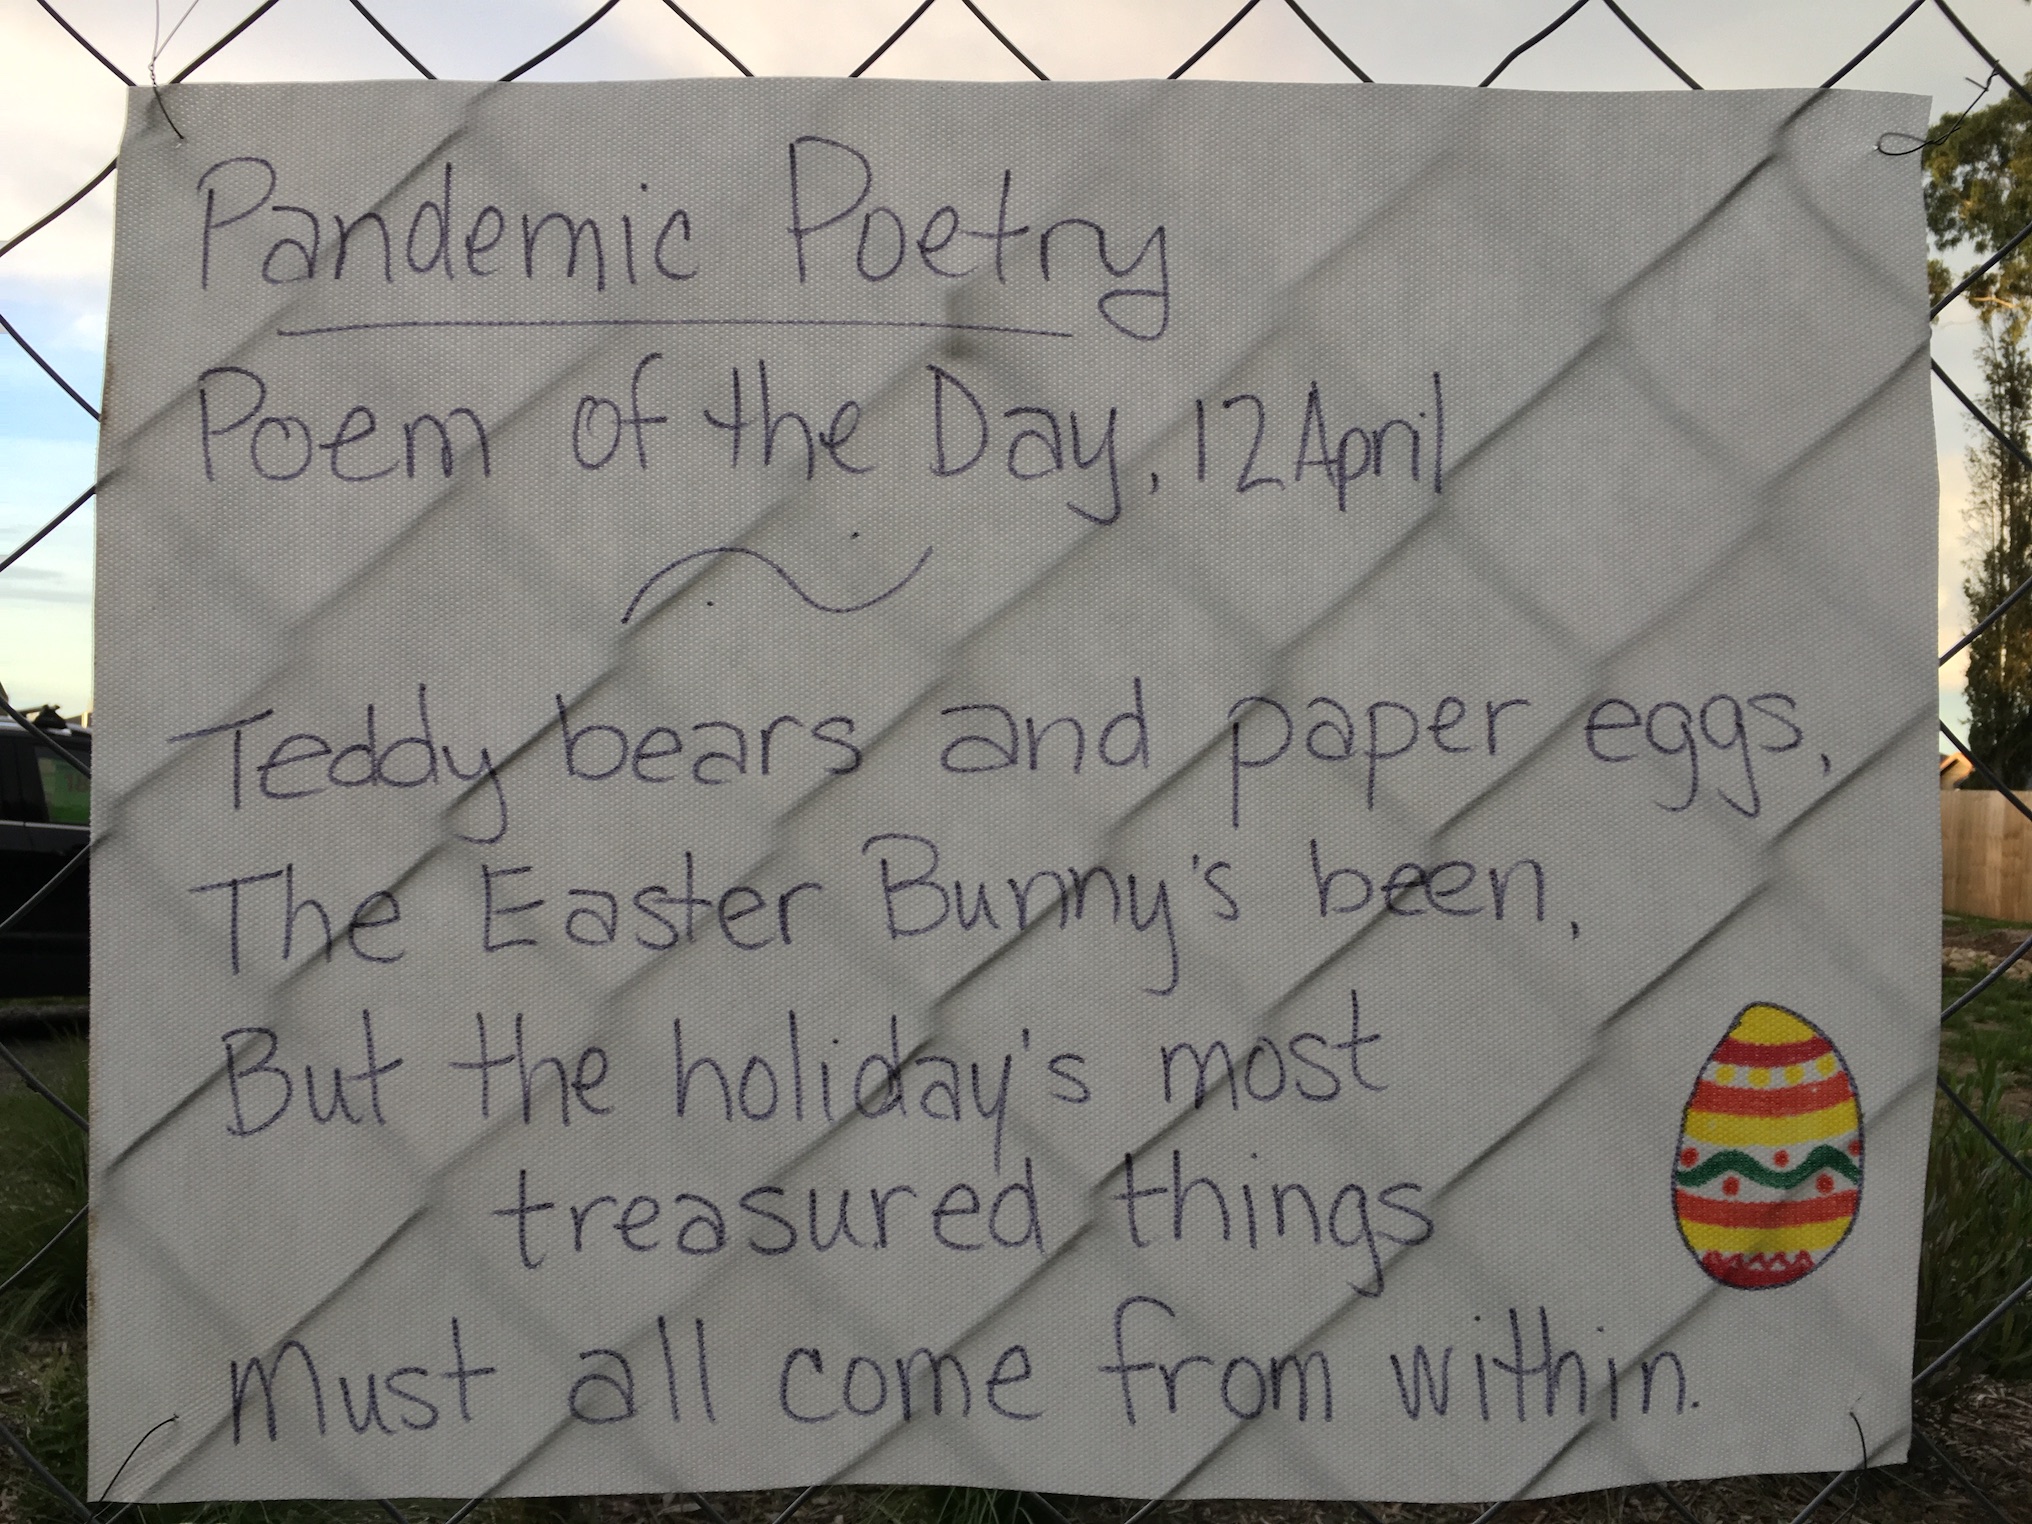 Pandemic Poetry
Poem of the Day, 12 April
Teddy bears and paper eggs,
The Easter Bunny's been,
But the holiday's most
treasured things
Must all come from within.